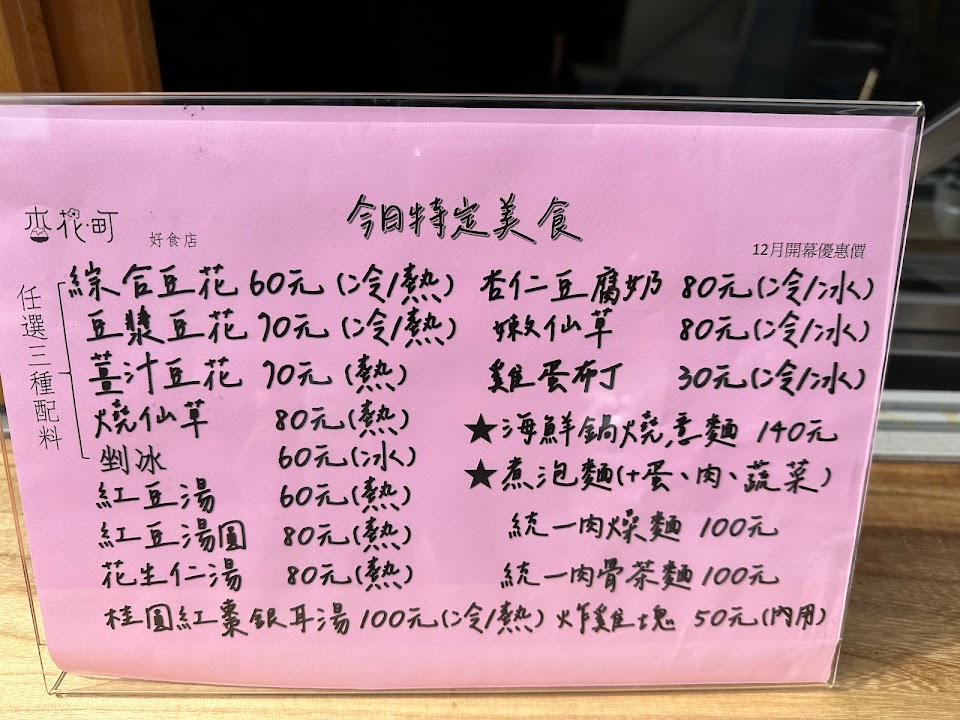 今日特定美食
杏花町
好食店
12月開幕優惠價
任選三種配料
綜合豆花 60元(冷/熱)
豆漿豆花 70元(冷/熱)
薑汁豆花 70元(熱)
燒仙草 80元(熱)
剉冰 60元(冰)
紅豆湯 60元(熱)
紅豆湯圓 80元(熱)
花生仁湯 80元(熱)
桂圓紅棗銀耳湯 100元(冷/熱)
杏仁豆腐奶 80元(冷/冰)
嫩仙草 80元(冷/冰)
雞蛋布丁 30元(冷/冰)
★海鮮鍋燒意麵 140元
★煮泡麵(+蛋、肉、蔬菜)
統一肉燥麵 100元
統一肉骨茶麵 100元
炸雞塊 50元(內用)